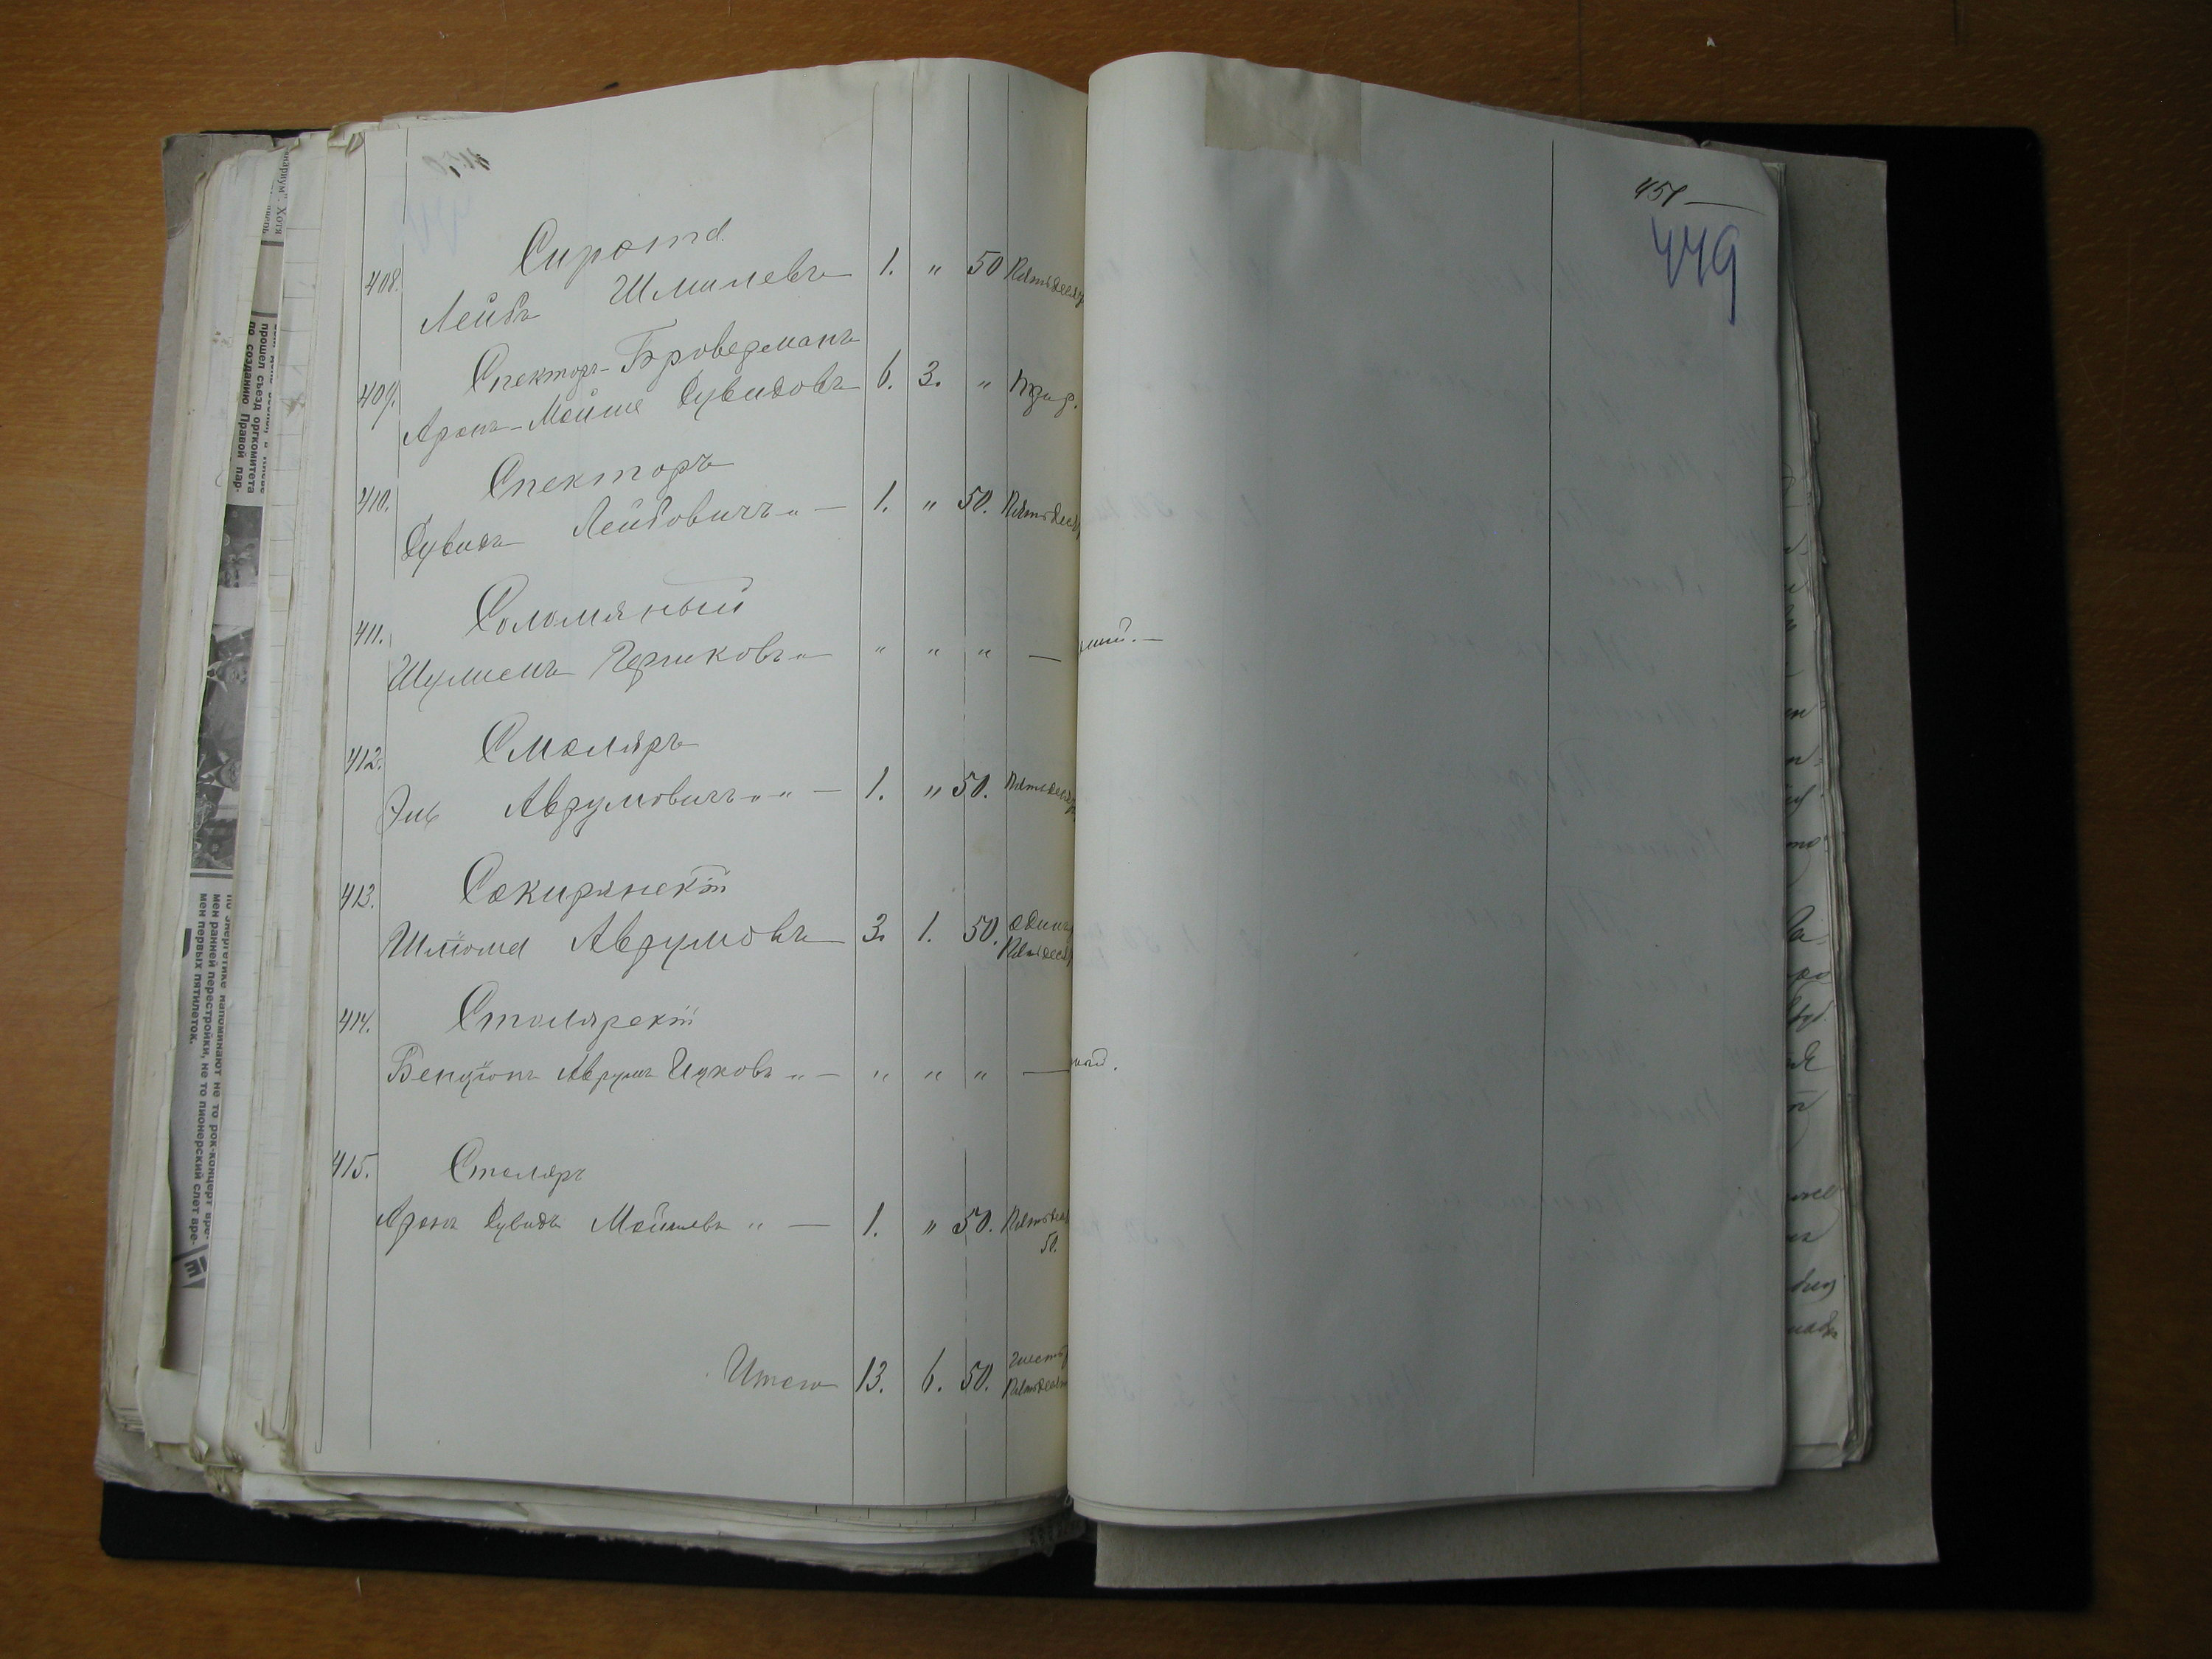 408. Сирота
Лейбъ Шмилевъ 1. " 50 Пятьдеся
409. Спекторъ-Броверманъ
Аронъ-Мойше Дувидовъ 6. 3. " три р.
410. Спекторъ
Дувидъ Лейбовичъ " — 1. " 50. Пятьдеся
411. Соломяный
Шулимъ Гершковъ " " " " —
ший. —
412. Смоляръ
Эль Аврумовичъ " " — 1. " 50. Пятьдеся
413. Сокирянскій
Шліома Аврумовъ 3. 1. 50. один р
Пятьдеся
414. Столярскій
Бенціонъ Аврумъ Ицковъ " — " " " —
ный.
415. Столяръ
Аронъ Дувидъ Мойшевъ " — 1. " 50. Пятьдеся
50.
Итого 13. 6. 50. шесть р
Пятьдесят
449
прошел съезд оргкомитета
по созданию Правой пар-
по энергетике напоминают не то рок-концерт вре-
мен ранней перестройки, не то пионерский слет вре-
мен первых пятилеток.